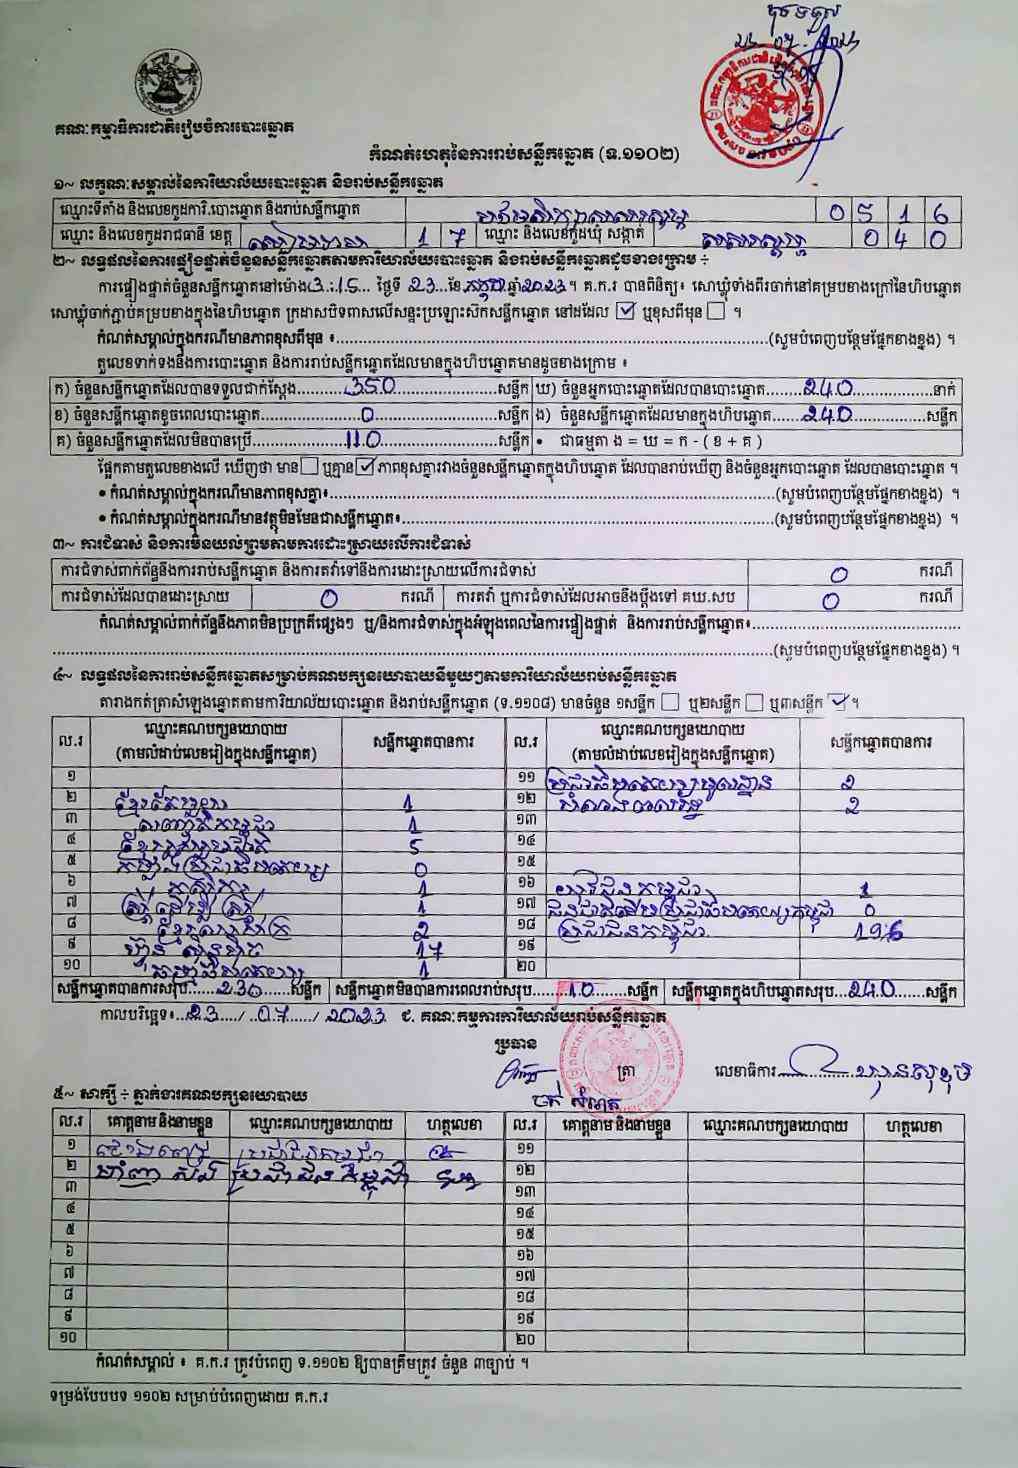 គណៈកម្មាធិការជាតិរៀបចំការបោះឆ្នោត
កំណត់ហេតុនៃការរាប់សន្លឹកឆ្នោត (ទ.១១០២)
១~ លក្ខណៈសម្គាល់នៃការិយាល័យបោះឆ្នោត និងរាប់សន្លឹកឆ្នោត
ឈ្មោះទីតាំង និងលេខកូដការិ.បោះឆ្នោត និងរាប់សន្លឹកឆ្នោត 0 5 1 6
ឈ្មោះ និងលេខកូដរាជធានី ខេត្ត សៀមរាប 1 7 ឈ្មោះ និងលេខកូដឃុំ សង្កាត់ 0 4 0
២~ លទ្ធផលនៃការផ្ទៀងផ្ទាត់ចំនួនសន្លឹកឆ្នោតតាមការិយាល័យបោះឆ្នោត និងរាប់សន្លឹកឆ្នោតដូចខាងក្រោម ÷
ការផ្ទៀងផ្ទាត់ចំនួនសន្លឹកឆ្នោតនៅម៉ោង 3:15 ថ្ងៃទី 23 ខែ កក្កដា ឆ្នាំ 2023 ។ គ.ក.រ បានពិនិត្យ៖ សោឃ្លុំទាំងពីរចាក់នៅគម្របខាងក្រៅនៃហិបឆ្នោត
សោឃ្លុំចាក់ភ្ជាប់គម្របខាងក្នុងនៃហិបឆ្នោត ក្រដាសបិទពាសលើសន្ទះប្រឡោះសឹកសន្លឹកឆ្នោត នៅដដែល ☑ ឬខុសពីមុន ☐ ។
កំណត់សម្គាល់ក្នុងករណីមានភាពខុសពីមុន ៖ (សូមបំពេញបន្ថែមផ្នែកខាងខ្នង) ។
តួលេខទាក់ទងនឹងការបោះឆ្នោត និងការរាប់សន្លឹកឆ្នោតដែលមានក្នុងហិបឆ្នោតមានដូចខាងក្រោម ៖
ក) ចំនួនសន្លឹកឆ្នោតដែលបានទទួលជាក់ស្តែង 350 សន្លឹក ឃ) ចំនួនអ្នកបោះឆ្នោតដែលបានបោះឆ្នោត 240 នាក់
ខ) ចំនួនសន្លឹកឆ្នោតខូចពេលបោះឆ្នោត 0 សន្លឹក ង) ចំនួនសន្លឹកឆ្នោតដែលមានក្នុងហិបឆ្នោត 240 សន្លឹក
គ) ចំនួនសន្លឹកឆ្នោតដែលមិនបានប្រើ 110 សន្លឹក • ជាធម្មតា ង = ឃ = ក - ( ខ + គ )
ផ្អែកតាមតួលេខខាងលើ ឃើញថា មាន ☐ ឬគ្មាន ☑ ភាពខុសគ្នារវាងចំនួនសន្លឹកឆ្នោតក្នុងហិបឆ្នោត ដែលបានរាប់ឃើញ និងចំនួនអ្នកបោះឆ្នោត ដែលបានបោះឆ្នោត ។
• កំណត់សម្គាល់ក្នុងករណីមានភាពខុសគ្នា៖ (សូមបំពេញបន្ថែមផ្នែកខាងខ្នង) ។
• កំណត់សម្គាល់ក្នុងករណីមានវត្ថុមិនមែនជាសន្លឹកឆ្នោត៖ (សូមបំពេញបន្ថែមផ្នែកខាងខ្នង) ។
៣~ ការជំទាស់ និងការមិនយល់ព្រមតាមការដោះស្រាយលើការជំទាស់
ការជំទាស់ពាក់ព័ន្ធនឹងការរាប់សន្លឹកឆ្នោត និងការតវ៉ាទៅនឹងការដោះស្រាយលើការជំទាស់ 0 ករណី
ការជំទាស់ដែលបានដោះស្រាយ 0 ករណី ការតវ៉ា ឬការជំទាស់ដែលអាចនឹងប្តឹងទៅ គឃ.សប 0 ករណី
កំណត់សម្គាល់ពាក់ព័ន្ធនឹងភាពមិនប្រក្រតីផ្សេងៗ ឬ/និងការជំទាស់ក្នុងអំឡុងពេលនៃការផ្ទៀងផ្ទាត់ និងការរាប់សន្លឹកឆ្នោត៖
(សូមបំពេញបន្ថែមផ្នែកខាងខ្នង) ។
៤~ លទ្ធផលនៃការរាប់សន្លឹកឆ្នោតសម្រាប់គណបក្សនយោបាយនីមួយៗតាមការិយាល័យរាប់សន្លឹកឆ្នោត
តារាងកត់ត្រាសំឡេងឆ្នោតតាមការិយាល័យបោះឆ្នោត និងរាប់សន្លឹកឆ្នោត (ទ.១១០៨) មានចំនួន ១សន្លឹក ☐ ឬ២សន្លឹក ☐ ឬ៣សន្លឹក ☑ ។
ល.រ ឈ្មោះគណបក្សនយោបាយ (តាមលំដាប់លេខរៀងក្នុងសន្លឹកឆ្នោត) សន្លឹកឆ្នោតបានការ ល.រ ឈ្មោះគណបក្សនយោបាយ (តាមលំដាប់លេខរៀងក្នុងសន្លឹកឆ្នោត) សន្លឹកឆ្នោតបានការ
១ ១១ ប្រជាធិបតេយ្យមូលដ្ឋាន 2
២ ខ្មែរតែមួយ 1 ១២ 2
៣ សញ្ជាតិកម្ពុជា 1 ១៣
៤ ខ្មែររួបរួមជាតិ 5 ១៤
៥ កម្លាំងប្រជាធិបតេយ្យ 0 ១៥
៦ កសិករ 1 ១៦ យុវជនកម្ពុជា 1
៧ ស្ត្រីដើម្បីស្ត្រី 1 ១៧ ជនជាតិដើមប្រជាធិបតេយ្យកម្ពុជា 0
៨ ខ្មែរអភិរក្ស 2 ១៨ ប្រជាជនកម្ពុជា 196
៩ ហ៊្វុនស៊ិនប៉ិច 17 ១៩
១០ ធម្មាធិបតេយ្យ 1 ២០
សន្លឹកឆ្នោតបានការសរុប 230 សន្លឹក សន្លឹកឆ្នោតមិនបានការពេលរាប់សរុប 10 សន្លឹក សន្លឹកឆ្នោតក្នុងហិបឆ្នោតសរុប 240 សន្លឹក
កាលបរិច្ឆេទ៖ 23 / 07 / 2023 ជ. គណៈកម្មការការិយាល័យរាប់សន្លឹកឆ្នោត
ប្រធាន
ត្រា លេខាធិការ
៥~ សាក្សី ÷ ភ្នាក់ងារគណបក្សនយោបាយ
ល.រ គោត្តនាម និងនាមខ្លួន ឈ្មោះគណបក្សនយោបាយ ហត្ថលេខា ល.រ គោត្តនាម និងនាមខ្លួន ឈ្មោះគណបក្សនយោបាយ ហត្ថលេខា
១ ប្រជាជនកម្ពុជា ១១
២ ប្រជាជនកម្ពុជា ១២
៣ ១៣
៤ ១៤
៥ ១៥
៦ ១៦
៧ ១៧
៨ ១៨
៩ ១៩
១០ ២០
កំណត់សម្គាល់ ៖ គ.ក.រ ត្រូវបំពេញ ទ.១១០២ ឱ្យបានត្រឹមត្រូវ ចំនួន ៣ច្បាប់ ។
ទម្រង់បែបបទ ១១០២ សម្រាប់បំពេញដោយ គ.ក.រ